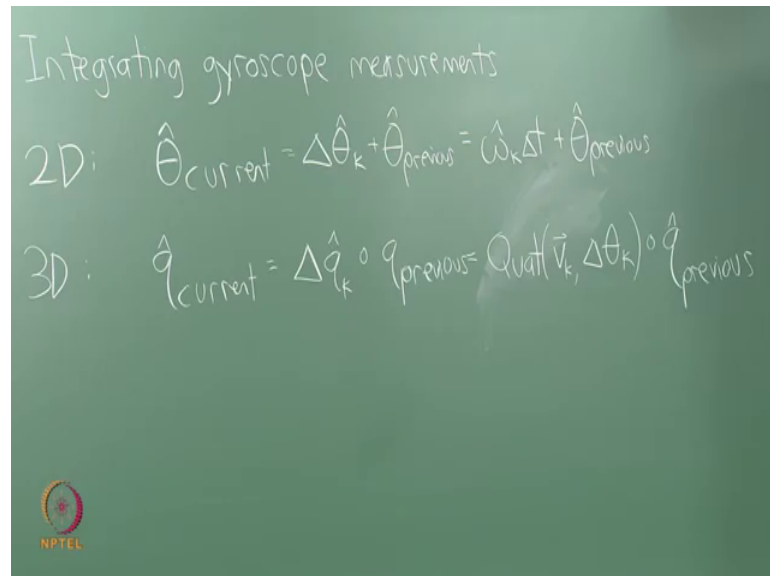 Integrating gyroscope measurements
2D: θ̂current = Δθ̂k + θ̂previous = ω̂kΔt + θ̂previous
3D: q̂current = Δq̂k ∘ qprevious = Quat(v⃗k, Δθk) ∘ q̂previous
NPTEL